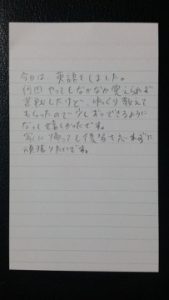 今日は、英語をしました。
何回やってもなかなか覚えられず
苦戦したけど、ゆっくり教えて
もらったので少しずつできるように
なって嬉しかったです。
家に帰っても復習を忘れずに
頑張りたいです。